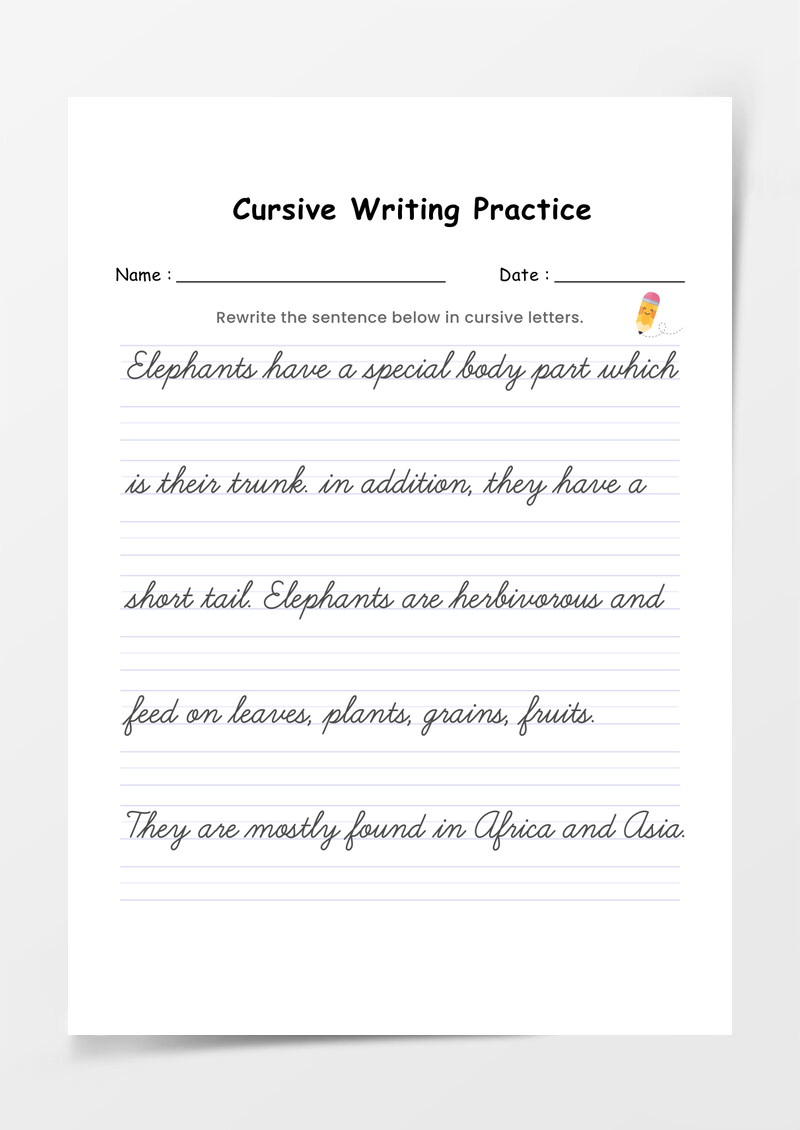 Cursive Writing Practice
Name : ______________________ Date : ___________
Rewrite the sentence below in cursive letters.
Elephants have a special body part which
is their trunk. in addition, they have a
short tail. Elephants are herbivorous and
feed on leaves, plants, grains, fruits.
They are mostly found in Africa and Asia.